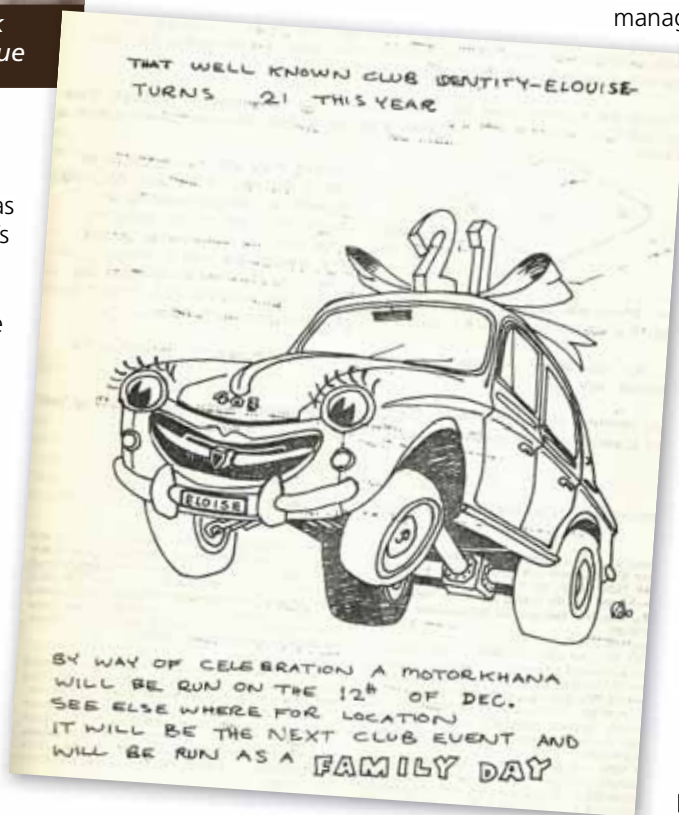 manag
ue
as
s
e
THAT WELL KNOWN CLUB IDENTITY-ELOUISE-
TURNS 21 THIS YEAR
21
403
ELOISE
BY WAY OF CELEBRATION A MOTORKHANA
WILL BE RUN ON THE 12th OF DEC.
SEE ELSE WHERE FOR LOCATION
IT WILL BE THE NEXT CLUB EVENT AND
WILL BE RUN AS A FAMILY DAY